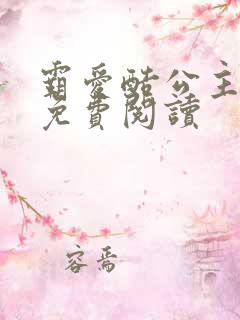 霸愛酷公主
免費閱讀
容焉